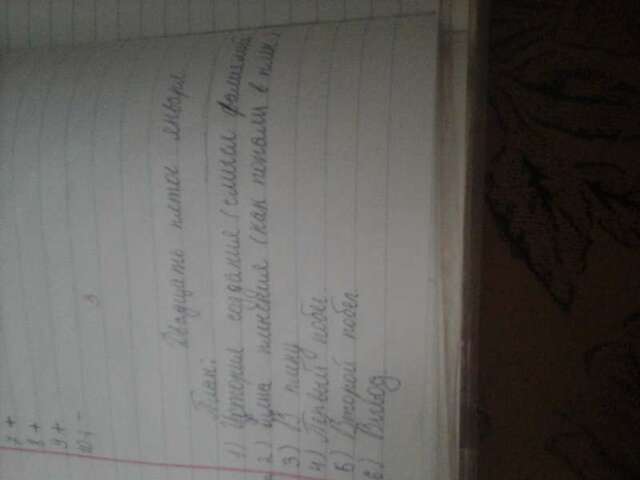 7 +
8 +
9 +
10 + -
3
Двадцать пятое января
План:
1) История создания (смысл фамилий
2) пленения (как попали в плен)
3) В плену
4) Первый побег.
5) Второй побег.
6) Вывод